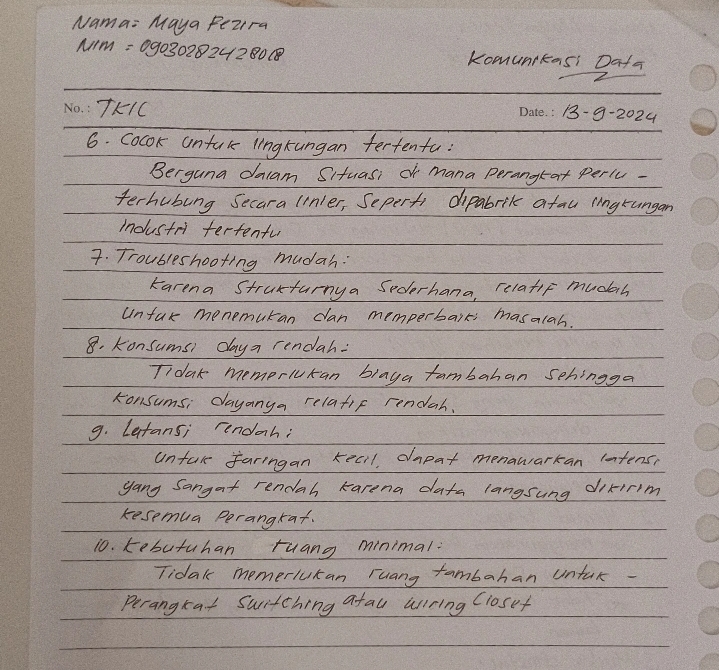 Nama: Maya Fezira
NIM = 09030282428018
Komunikasi Data
No.: TK1C
Date.: 13-9-2024
6. Cocok untuk lingkungan tertentu:
Berguna dalam situasi di mana perangkat perlu -
terhubung secara linier, seperti dipabrik atau lingkungan
industri tertentu
7. Troubleshooting mudah:
Karena strukturnya sederhana, relatif mudah
untuk menemukan dan memperbaiki masalah.
8. Konsumsi daya rendah:
Tidak memerlukan biaya tambahan sehingga
konsumsi dayanya relatif rendah.
9. Latansi rendah:
Untuk jaringan kecil, dapat menawarkan latensi
yang sangat rendah karena data langsung dikirim
kesemua perangkat.
10. Kebutuhan ruang minimal:
Tidak memerlukan ruang tambahan untuk -
perangkat switching atau wiring closet